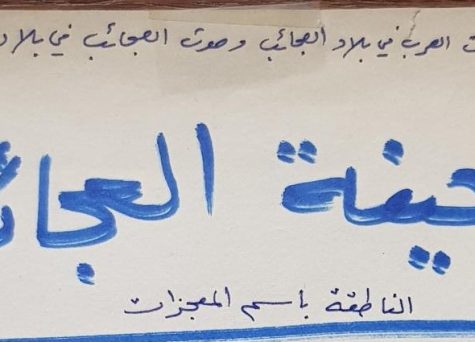 العرب في بلاد العجائب وصوت العجائب في بلاد
يفة العجا
الناطقة باسم المعجزات